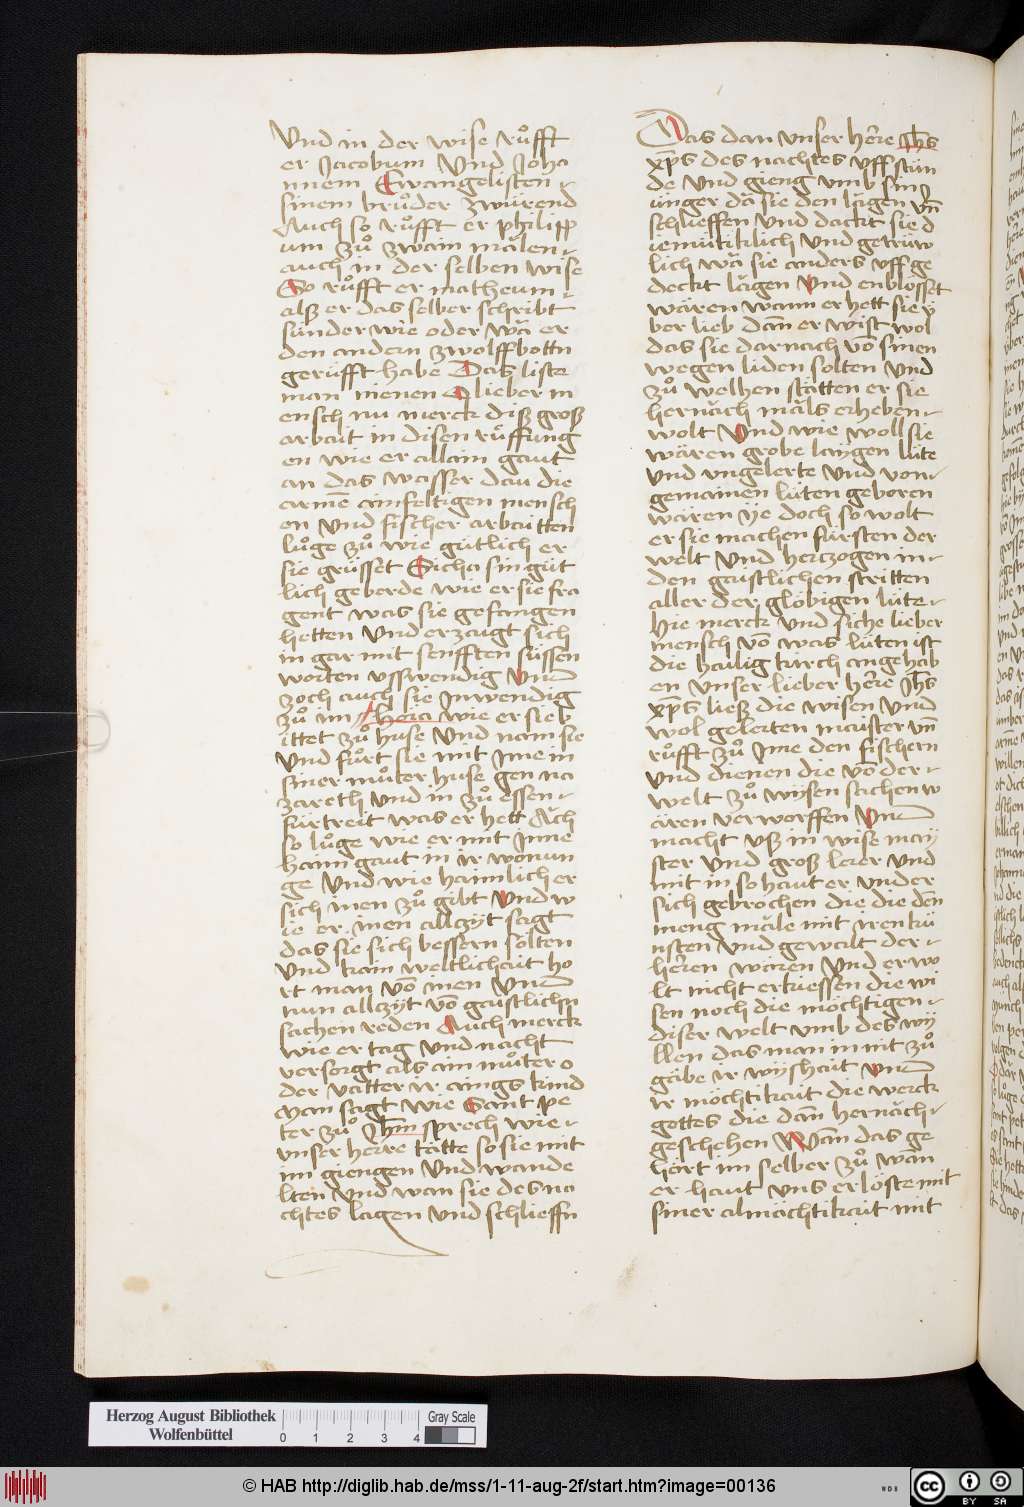 Vnd in der wise růfft
er Jacobum Vnd Joha
nnem Ewangelisten
sinem brůder zwúrend
Auch so růfft er philipp
um zů zwain målen
auch in der selben wise
So růfft er matheum
alß er das selber schribt
sunder wie oder wå er
den andern zwolffbottn
gerüfft habe Das liste
man inenen O lieber m
ensch nu merck diß groß
arbait in disen růffung
en wie er allain gaut
an das wasser dau die
arme ainfeltigen mensch
en Vnd fischer arbautten
lůge zů wie gútlich er
sie grússet Sich a sin gút
lich geberde wie er sie fra
gent was sie gefangen
hetten Vnd erzaugt sich
in gar mit senfften sússen
worten vsswendig Vnd
zoch auch sie Jnwendig
zů im Jhesa wie er sie b
ittet zů huse Vnd nam sie
Vnd fůrt sie mit Jme in
siner můter huse gen na
zareth Vnd in zů essen
fúrtreit was er hett Ach
so lůge wie er mit Jnne
haim gaut in ir wonun
ge Vnd wie haimlich er
sich inen zů gibt Vnd w
ie er inen allzÿt sagt
das sie sich bessern solten
Vnd kain weltlichait ho
rt man võ inen Vnd
nun allzÿt võ gaistlichn
sachen reden Auch merck
wie er tag Vnd nacht
versorgt als ain můter o
der Vatter ir ainigs kind
Man sagt wie Sant pe
ter zů Rom sprech wie
vnser herre tätte so sie mit
im giengen Vnd wande
lten Vnd wan sie des na
chtes lagen Vnd schlieffn
Das dan Vnser herre Jhs
xp̃s des nachtes Vff stún
de Vnd gieng vmb sin j
unger då sie den lågen vñ
schlieffen Vnd dackt sie d
iemútiklich Vnd getrúw
lich wå sie anders Vff ge
deckt lågen Vnd enblösset
wåren wann er hett sie ú
ber lieb dañ er wist wol
das sie darnach võ sinen
wegen liden solten Vnd
zů welhen stätten er sie
hernåch måls erheben
wolt Vnd wie woll sie
wåren grobe laygen lüte
Vnd vngelerte Vnd von
gemainen lúten geboren
wåren ÿe doch so wolt
er sie machen fúrsten der
welt Vnd herczogen in
den gaistlichen stritten
aller der glöbigen lúte
Hie merck Vnd siche lieber
mensch võ was lúten ist
die hailig kirch angehab
en Vnser lieber herre Jhs
xp̃s ließ die wisen Vnd
wol gelerten maister vñ
růfft zů Jme den fischern
Vnd dienen die võ der
welt zů wÿsen sachen w
åren verworffen Vnd
macht vß in wise maÿ
ster Vnd groß lerer Vnd
mit in so haut er vnder
sich gebrochen die die deñ
meng måle mit iren kú
nsten Vnd gewalt der
herren wåren Vnd er wo
lt nicht erkiessen die wi
sen noch die möchtigen
diser welt vmb des wÿ
llen das man in nit zů
gåbe ir wÿshait Vnd
ir möchtikait die werck
gottes die dañ hernåch
geschehen Wañ das ge
hört im selber zů wañ
er haut Vns erlöste mit
siner almächtikait mit
Herzog August Bibliothek
Wolfenbüttel
0 1 2 3 4
Gray Scale
© HAB http://diglib.hab.de/mss/1-11-aug-2f/start.htm?image=00136
WDB
cc BY SA